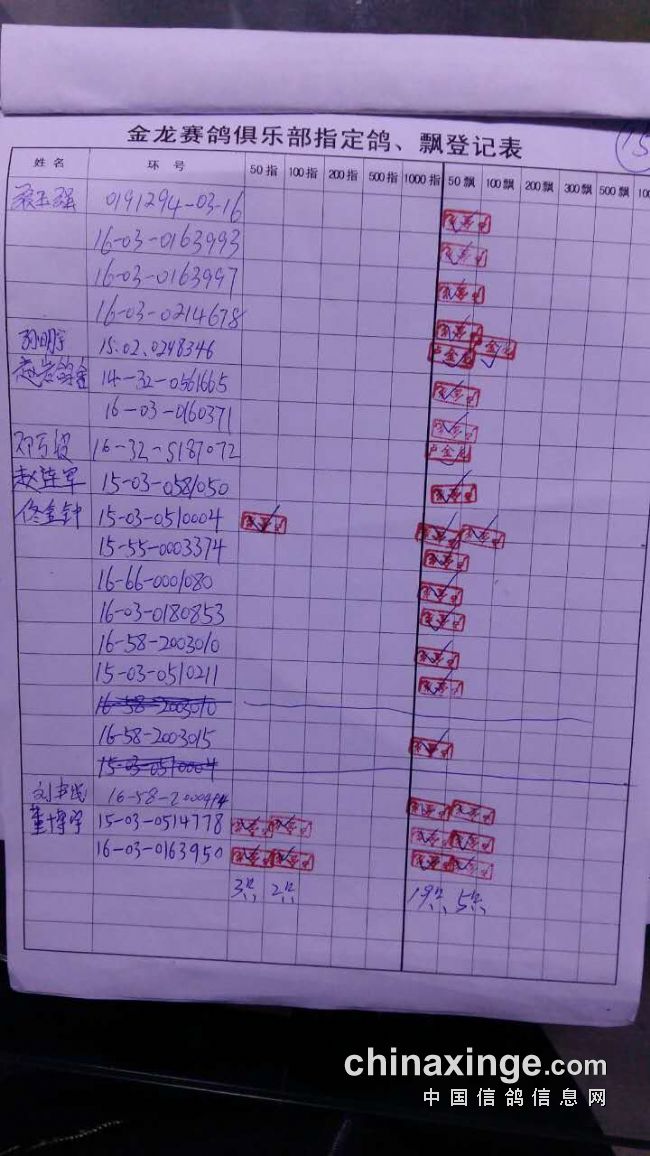 金龙赛鸽俱乐部指定鸽、飘登记表
15
姓名 环号 50指 100指 200指 500指 1000指 50飘 100飘 200飘 300飘 500飘 100
0191294-03-16
16-03-0163993
16-03-0163997
16-03-0214678
孙明宇 15.02.0248346
赵岩鸽舍 14-32-0561665
16-03-0160371
16-32-5187072
赵连军 15-03-0581050
佟金钟 15-03-0510004
15-55-0003374
16-66-0001080
16-03-0180853
16-58-2003010
15-03-0510211
16-58-2003010
16-58-2003015
15-03-0510004
16-58-2000494
董博宇 15-03-0514778
16-03-0163950
3只 2只 19只 5只
chinaxinge.com
中国信鸽信息网